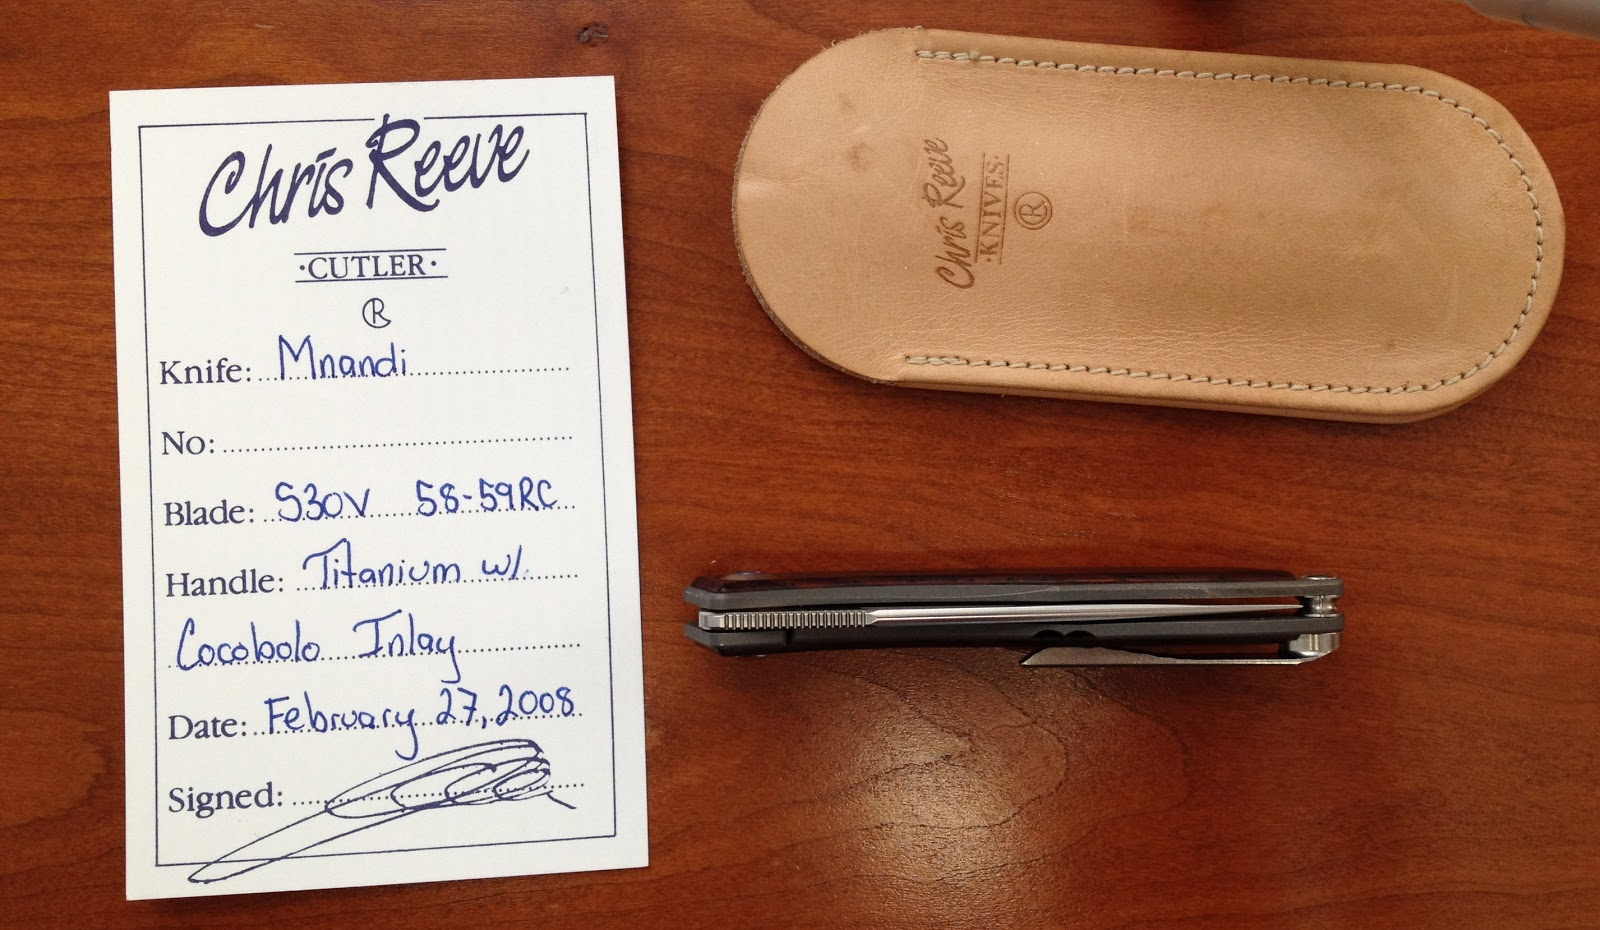 Chris Reeve
·CUTLER·
R
Knife: Mnandi
No:
Blade: S30V 58-59RC
Handle: Titanium w/
Cocobolo Inlay
Date: February 27, 2008
Signed:
Chris Reeve
·KNIVES·
R